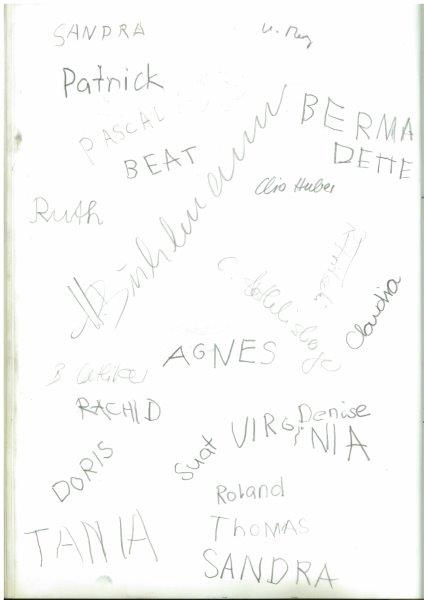 SANDRA
Patnick
PASCAL
BERMA
DETTE
BEAT
Clio Huber
Ruth
Bühlmann
Claudia
AGNES
RACHID
Denise
VIRGINIA
Suat
DORIS
Roland
THOMAS
TANIA
SANDRA